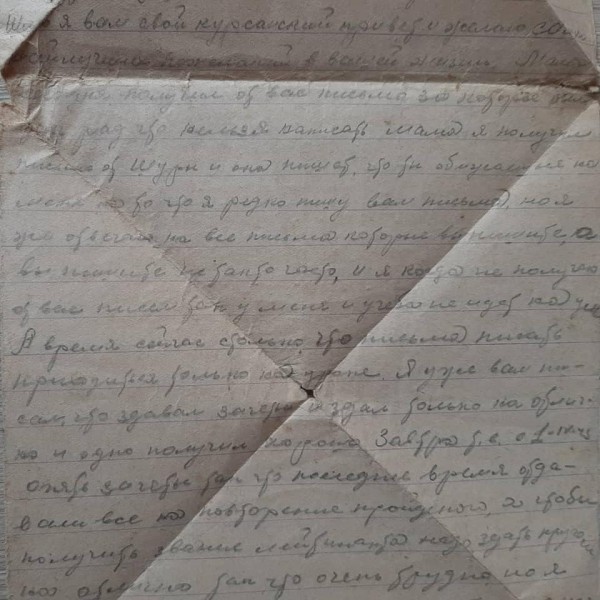 Шлю я вам свой курсанский привет и желаю самы
наилучших пожеланий в вашей жизни. Мама
получил от вас письма за которые был
рад что нельзя написать мама я получил
письмо от Шуры и она пишет, что ты обижаешься на
меня за то что я редко пишу вам письма, но я
же отвечаю на все письма которые вы пишите, а
вы пишите не так то часто, и я когда не получаю
от вас писем так у меня и учеба не идет на ум
А время сейчас столько что письма писать
приходиться только на уроке. Я уже вам пи-
сал, что здавал зачеты и здал только на отлич-
но и одно получил хорошо Завтра т.е. с 1-
опять зачеты так что последнее время отда-
вали все на повторение пройденого, а чтобы
получить звание лейтинанта надо здать
на отлично так что очень трудно но я